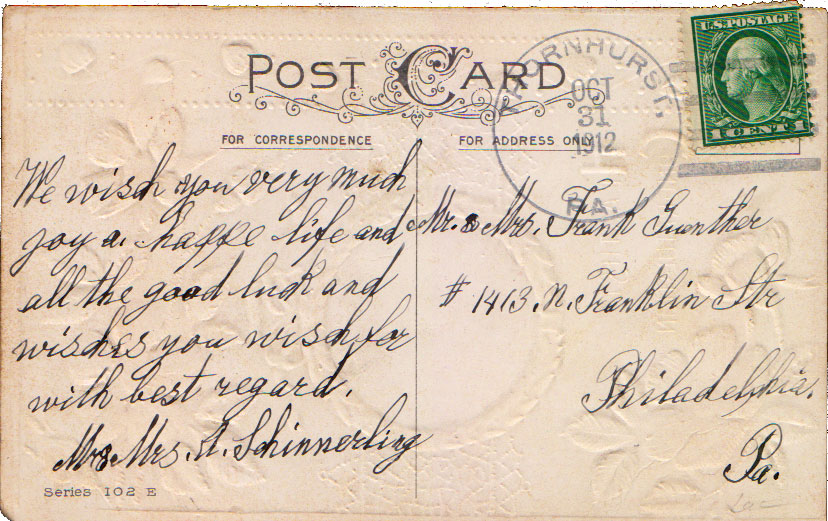 POST CARD
FOR CORRESPONDENCE
FOR ADDRESS ONLY
THORNHURST,
OCT
31
1912
PA.
U.S. POSTAGE
1 CENT 1
We wish you very much
joy a. happe life and
all the good luck and
wishes you wish for
with best regard.
Mr & Mrs. A. Schinnerling
Series 102 E
Mr. & Mrs. Frank Guenther
# 1413. N. Franklin Str
Philadelphia.
Pa.